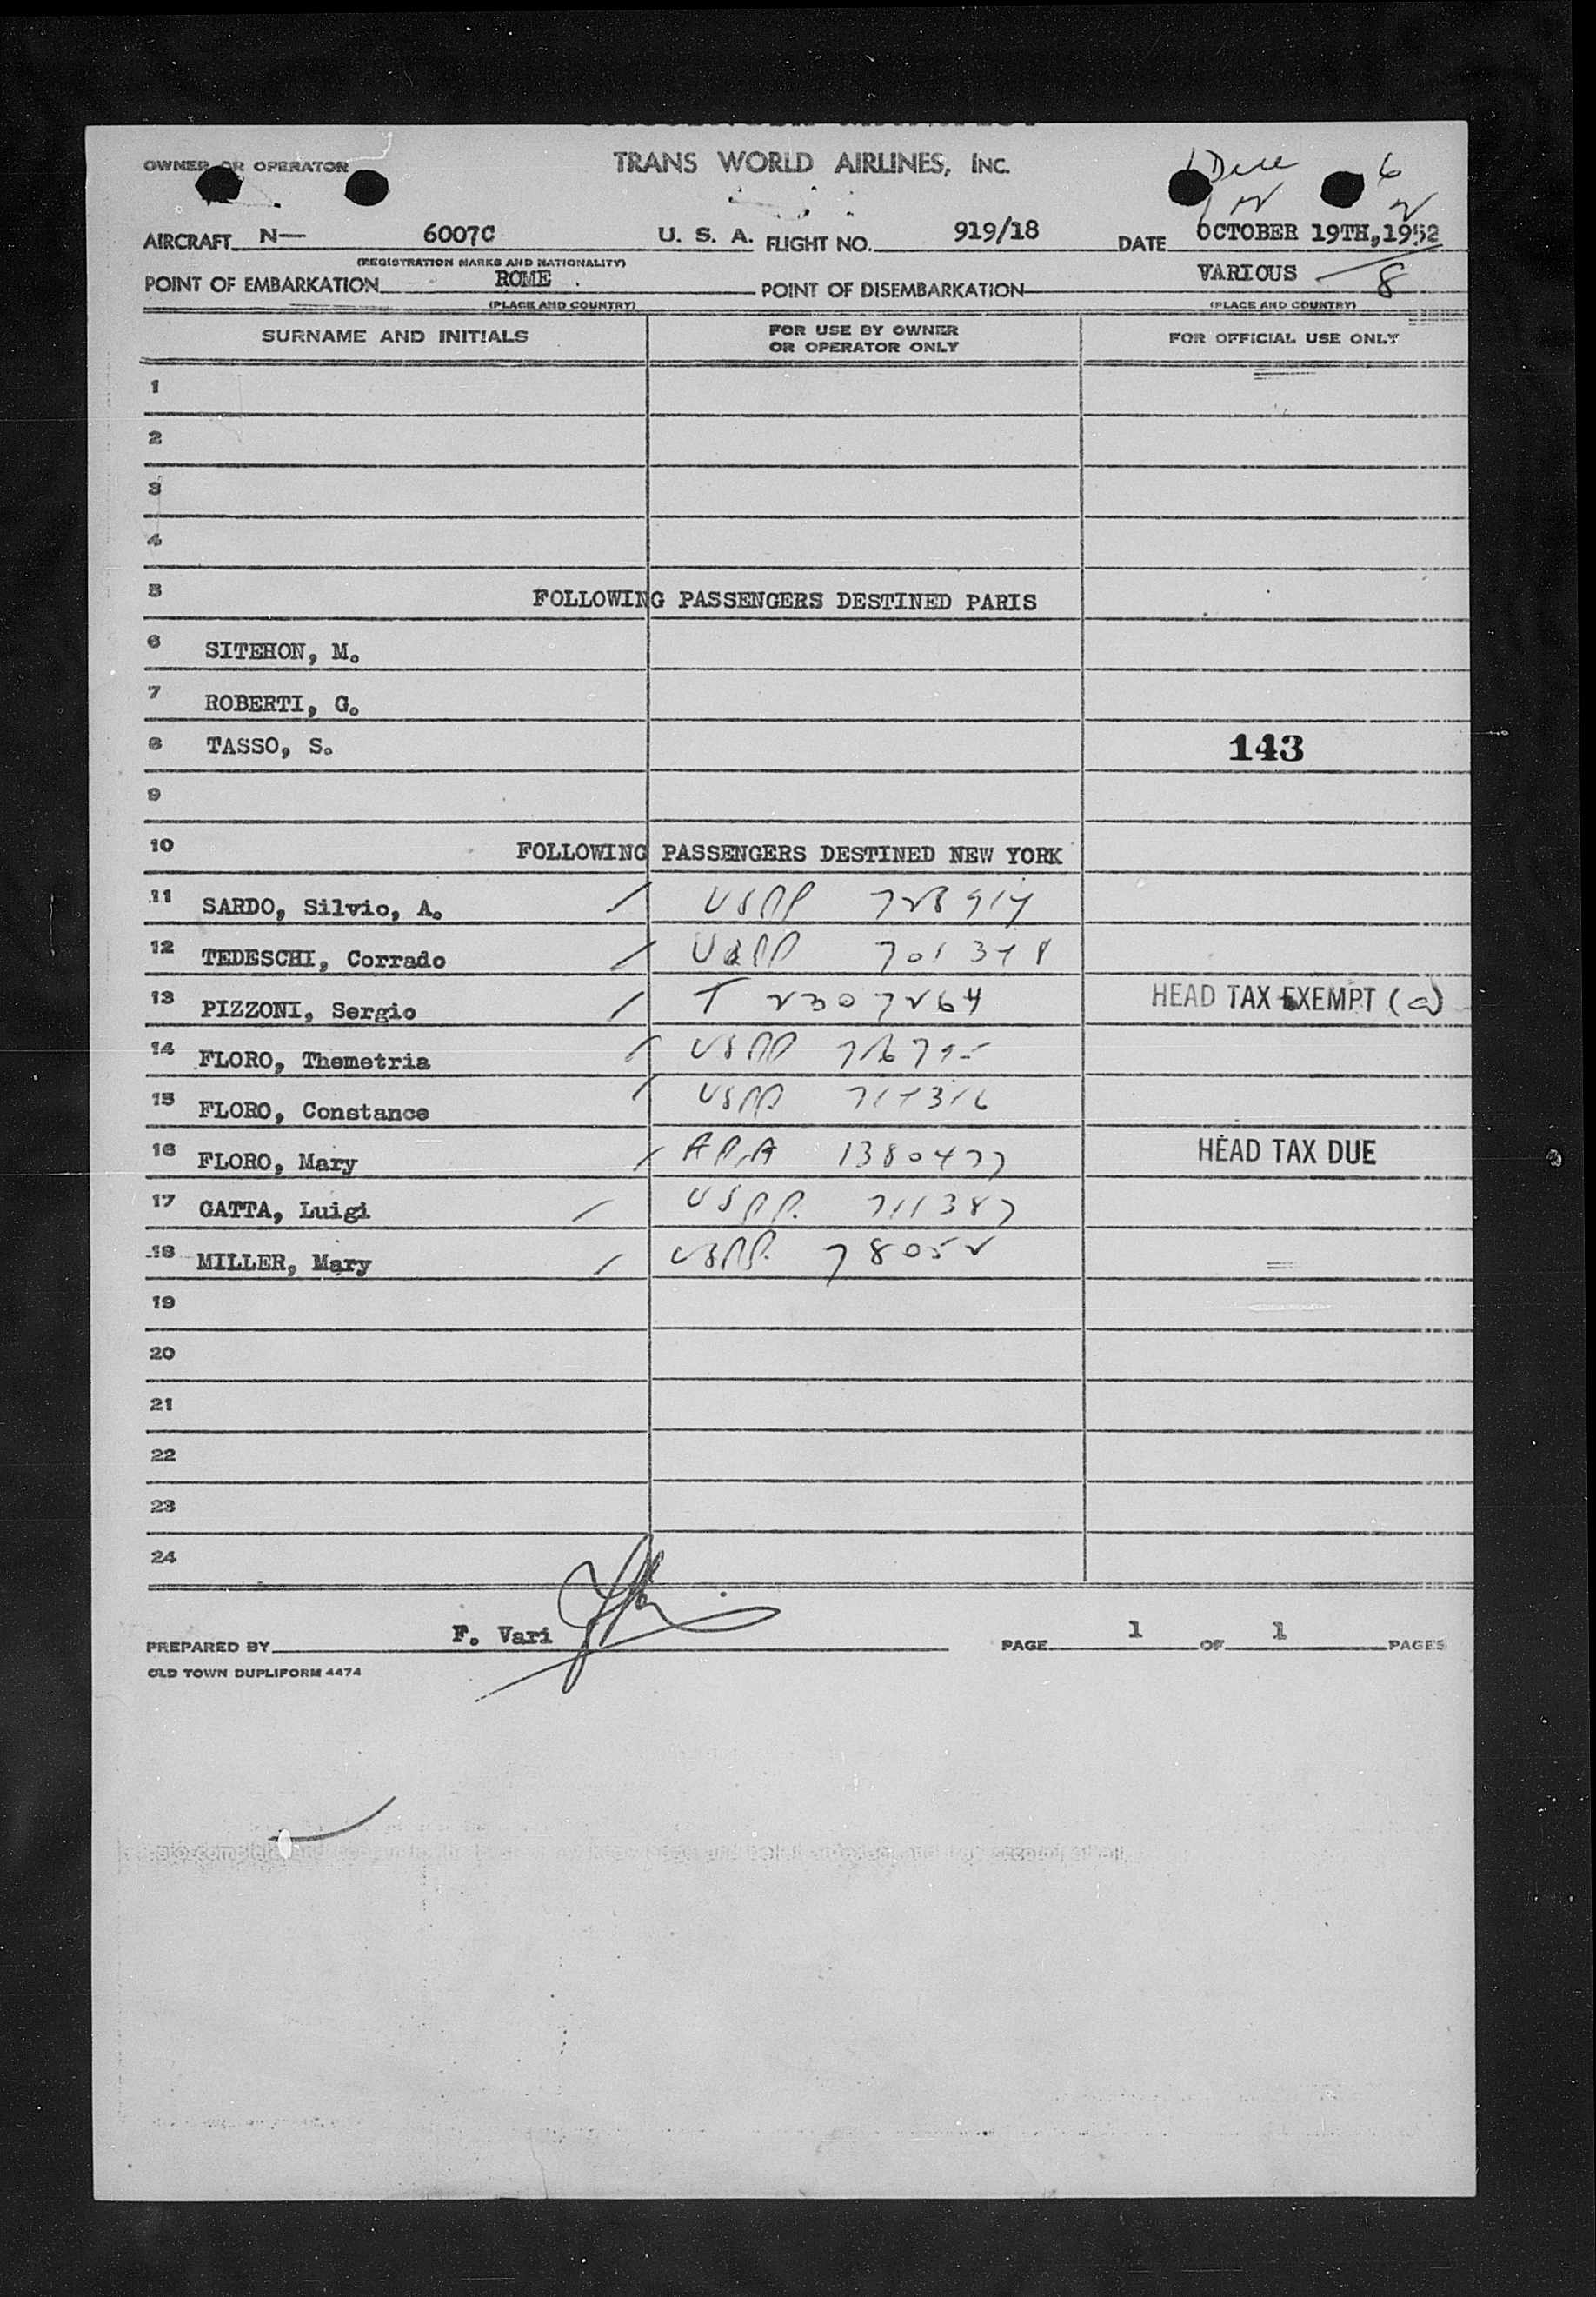 OWNER OR OPERATOR
TRANS WORLD AIRLINES, INC.
6
AIRCRAFT N— 6007C U. S. A. FLIGHT NO. 919/18 DATE OCTOBER 19TH, 1952
(REGISTRATION MARKS AND NATIONALITY)
POINT OF EMBARKATION ROME POINT OF DISEMBARKATION VARIOUS 8
(PLACE AND COUNTRY) (PLACE AND COUNTRY)
SURNAME AND INITIALS FOR USE BY OWNER OR OPERATOR ONLY FOR OFFICIAL USE ONLY
1
2
3
4
5 FOLLOWING PASSENGERS DESTINED PARIS
6 SITEHON, M.
7 ROBERTI, G.
8 TASSO, S. 143
9
10 FOLLOWING PASSENGERS DESTINED NEW YORK
11 SARDO, Silvio, A. / USPP 728914
12 TEDESCHI, Corrado / USPP
13 PIZZONI, Sergio / T 2307264 HEAD TAX EXEMPT (a)
14 FLORO, Themetria / USPP
15 FLORO, Constance / USPP
16 FLORO, Mary / 1380477 HEAD TAX DUE
17 GATTA, Luigi / USPP. 711387
18 MILLER, Mary / USPP. 78052
19
20
21
22
23
24
PREPARED BY F. Vari PAGE 1 OF 1 PAGES
OLD TOWN DUPLIFORM 4474